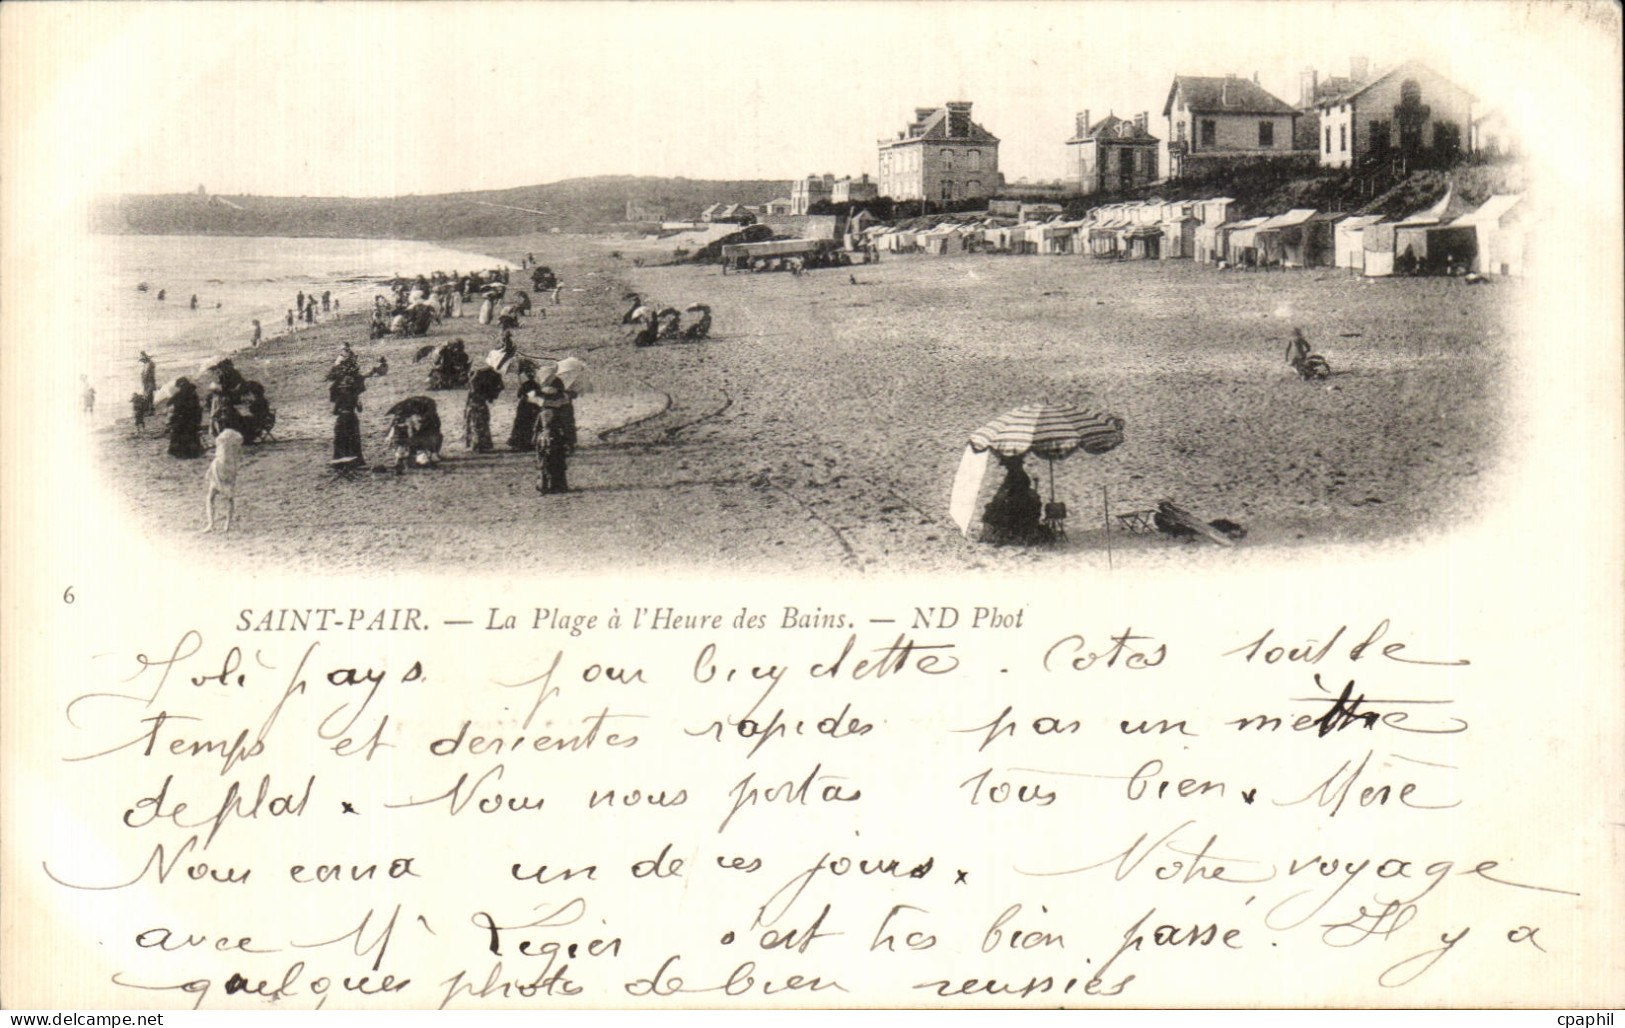 6
SAINT-PAIR. — La Plage à l'Heure des Bains. — ND Phot
Joli pays pour bicyclette. Cotes tout le
temps et descentes rapides pas un mettre
de plat. Nous nous portas tous bien. Mère
Nous un de ces jours. Notre voyage
avec Mr Légier s'est très bien passé. Il y a
quelques photos de bien reussies
cpaphil